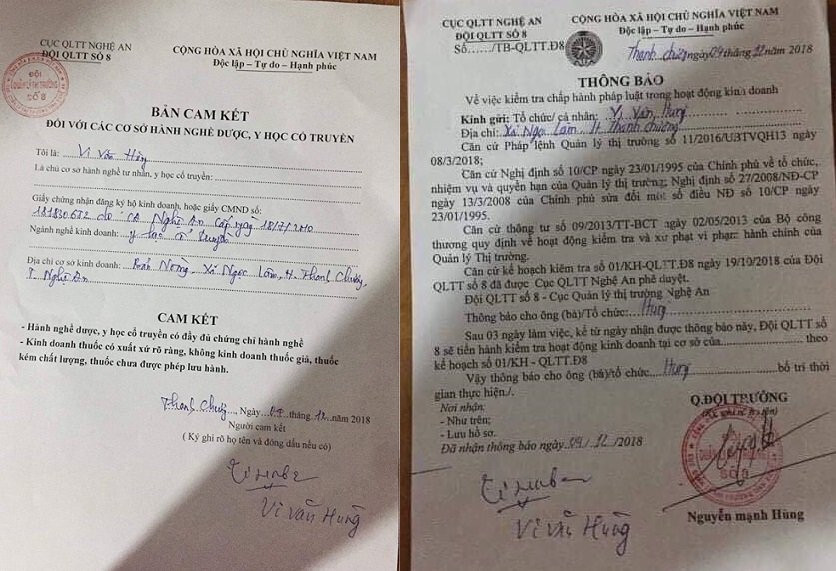 CỤC QLTT NGHỆ AN
ĐỘI QLTT SỐ 8
CỘNG HÒA XÃ HỘI CHỦ NGHĨA VIỆT NAM
Độc lập – Tự do – Hạnh phúc
ĐỘI
QUẢN LÝ THỊ TRƯỜNG
SỐ 8
BẢN CAM KẾT
ĐỐI VỚI CÁC CƠ SỞ HÀNH NGHỀ DƯỢC, Y HỌC CỔ TRUYỀN
Tôi là: Vi Văn Hùng
Là chủ cơ sở hành nghề tư nhân, y học cổ truyền:
Giấy chứng nhận đăng ký hộ kinh doanh, hoặc giấy CMND số:
181830672 do CA Nghệ An Cấp ngày 18/7/2010
Ngành nghề kinh doanh: y học cổ truyền
Địa chỉ cơ sở kinh doanh: Bản Nòng, Xã Ngọc Lâm, H. Thanh Chương,
T. Nghệ An
CAM KẾT
- Hành nghề dược, y học cổ truyền có đầy đủ chứng chỉ hành nghề
- Kinh doanh thuốc có xuất xứ rõ ràng, không kinh doanh thuốc giả, thuốc
kém chất lượng, thuốc chưa được phép lưu hành.
Thanh Chương, Ngày 09 tháng 12 năm 2018
Người cam kết
( Ký ghi rõ họ tên và đóng dấu nếu có)
Vi Văn Hùng
CỤC QLTT NGHỆ AN
ĐỘI QLTT SỐ 8
Số....../TB-QLTT.Đ8
CỘNG HÒA XÃ HỘI CHỦ NGHĨA VIỆT NAM
Độc lập – Tự do – Hạnh phúc
Thanh chương ngày 09 tháng 12 năm 2018
THÔNG BÁO
Về việc kiểm tra chấp hành pháp luật trong hoạt động kinh doanh
Kính gửi: Tổ chức/ cá nhân: Vi Văn Hùng
Địa chỉ: Xã Ngọc Lâm, H Thanh Chương
Căn cứ Pháp lệnh Quản lý thị trường số 11/2016/UBTVQH13 ngày
08/3/2018;
Căn cứ Nghị định số 10/CP ngày 23/01/1995 của Chính phủ về tổ chức,
nhiệm vụ và quyền hạn của Quản lý thị trường; Nghị định số 27/2008/NĐ-CP
ngày 13/3/2008 của Chính phủ sửa đổi một số điều NĐ số 10/CP ngày
23/01/1995.
Căn cứ thông tư số 09/2013/TT-BCT ngày 02/05/2013 của Bộ công
thương quy định về hoạt động kiểm tra và xử phạt vi phạm hành chính của
Quản lý Thị trường.
Căn cứ kế hoạch kiểm tra số 01/KH-QLTT.Đ8 ngày 19/10/2018 của Đội
QLTT số 8 đã được Cục QLTT Nghệ An phê duyệt.
Đội QLTT số 8 - Cục Quản lý thị trường Nghệ An
Thông báo cho ông (bà)/Tổ chức: Hùng
Sau 03 ngày làm việc, kể từ ngày nhận được thông báo này, Đội QLTT số
8 sẽ tiến hành kiểm tra hoạt động kinh doanh tại cơ sở của............ theo
kế hoạch số 01/KH - QLTT.Đ8
Vậy thông báo cho ông (bà)/tổ chức Hùng bố trí thời
gian thực hiện./.
Nơi nhận:
- Như trên;
- Lưu hồ sơ.
Đã nhận thông báo ngày 09/12/2018
Q.ĐỘI TRƯỞNG
ĐỘI
QUẢN LÝ THỊ TRƯỜNG
SỐ 8
Vi Văn Hùng
Nguyễn mạnh Hùng